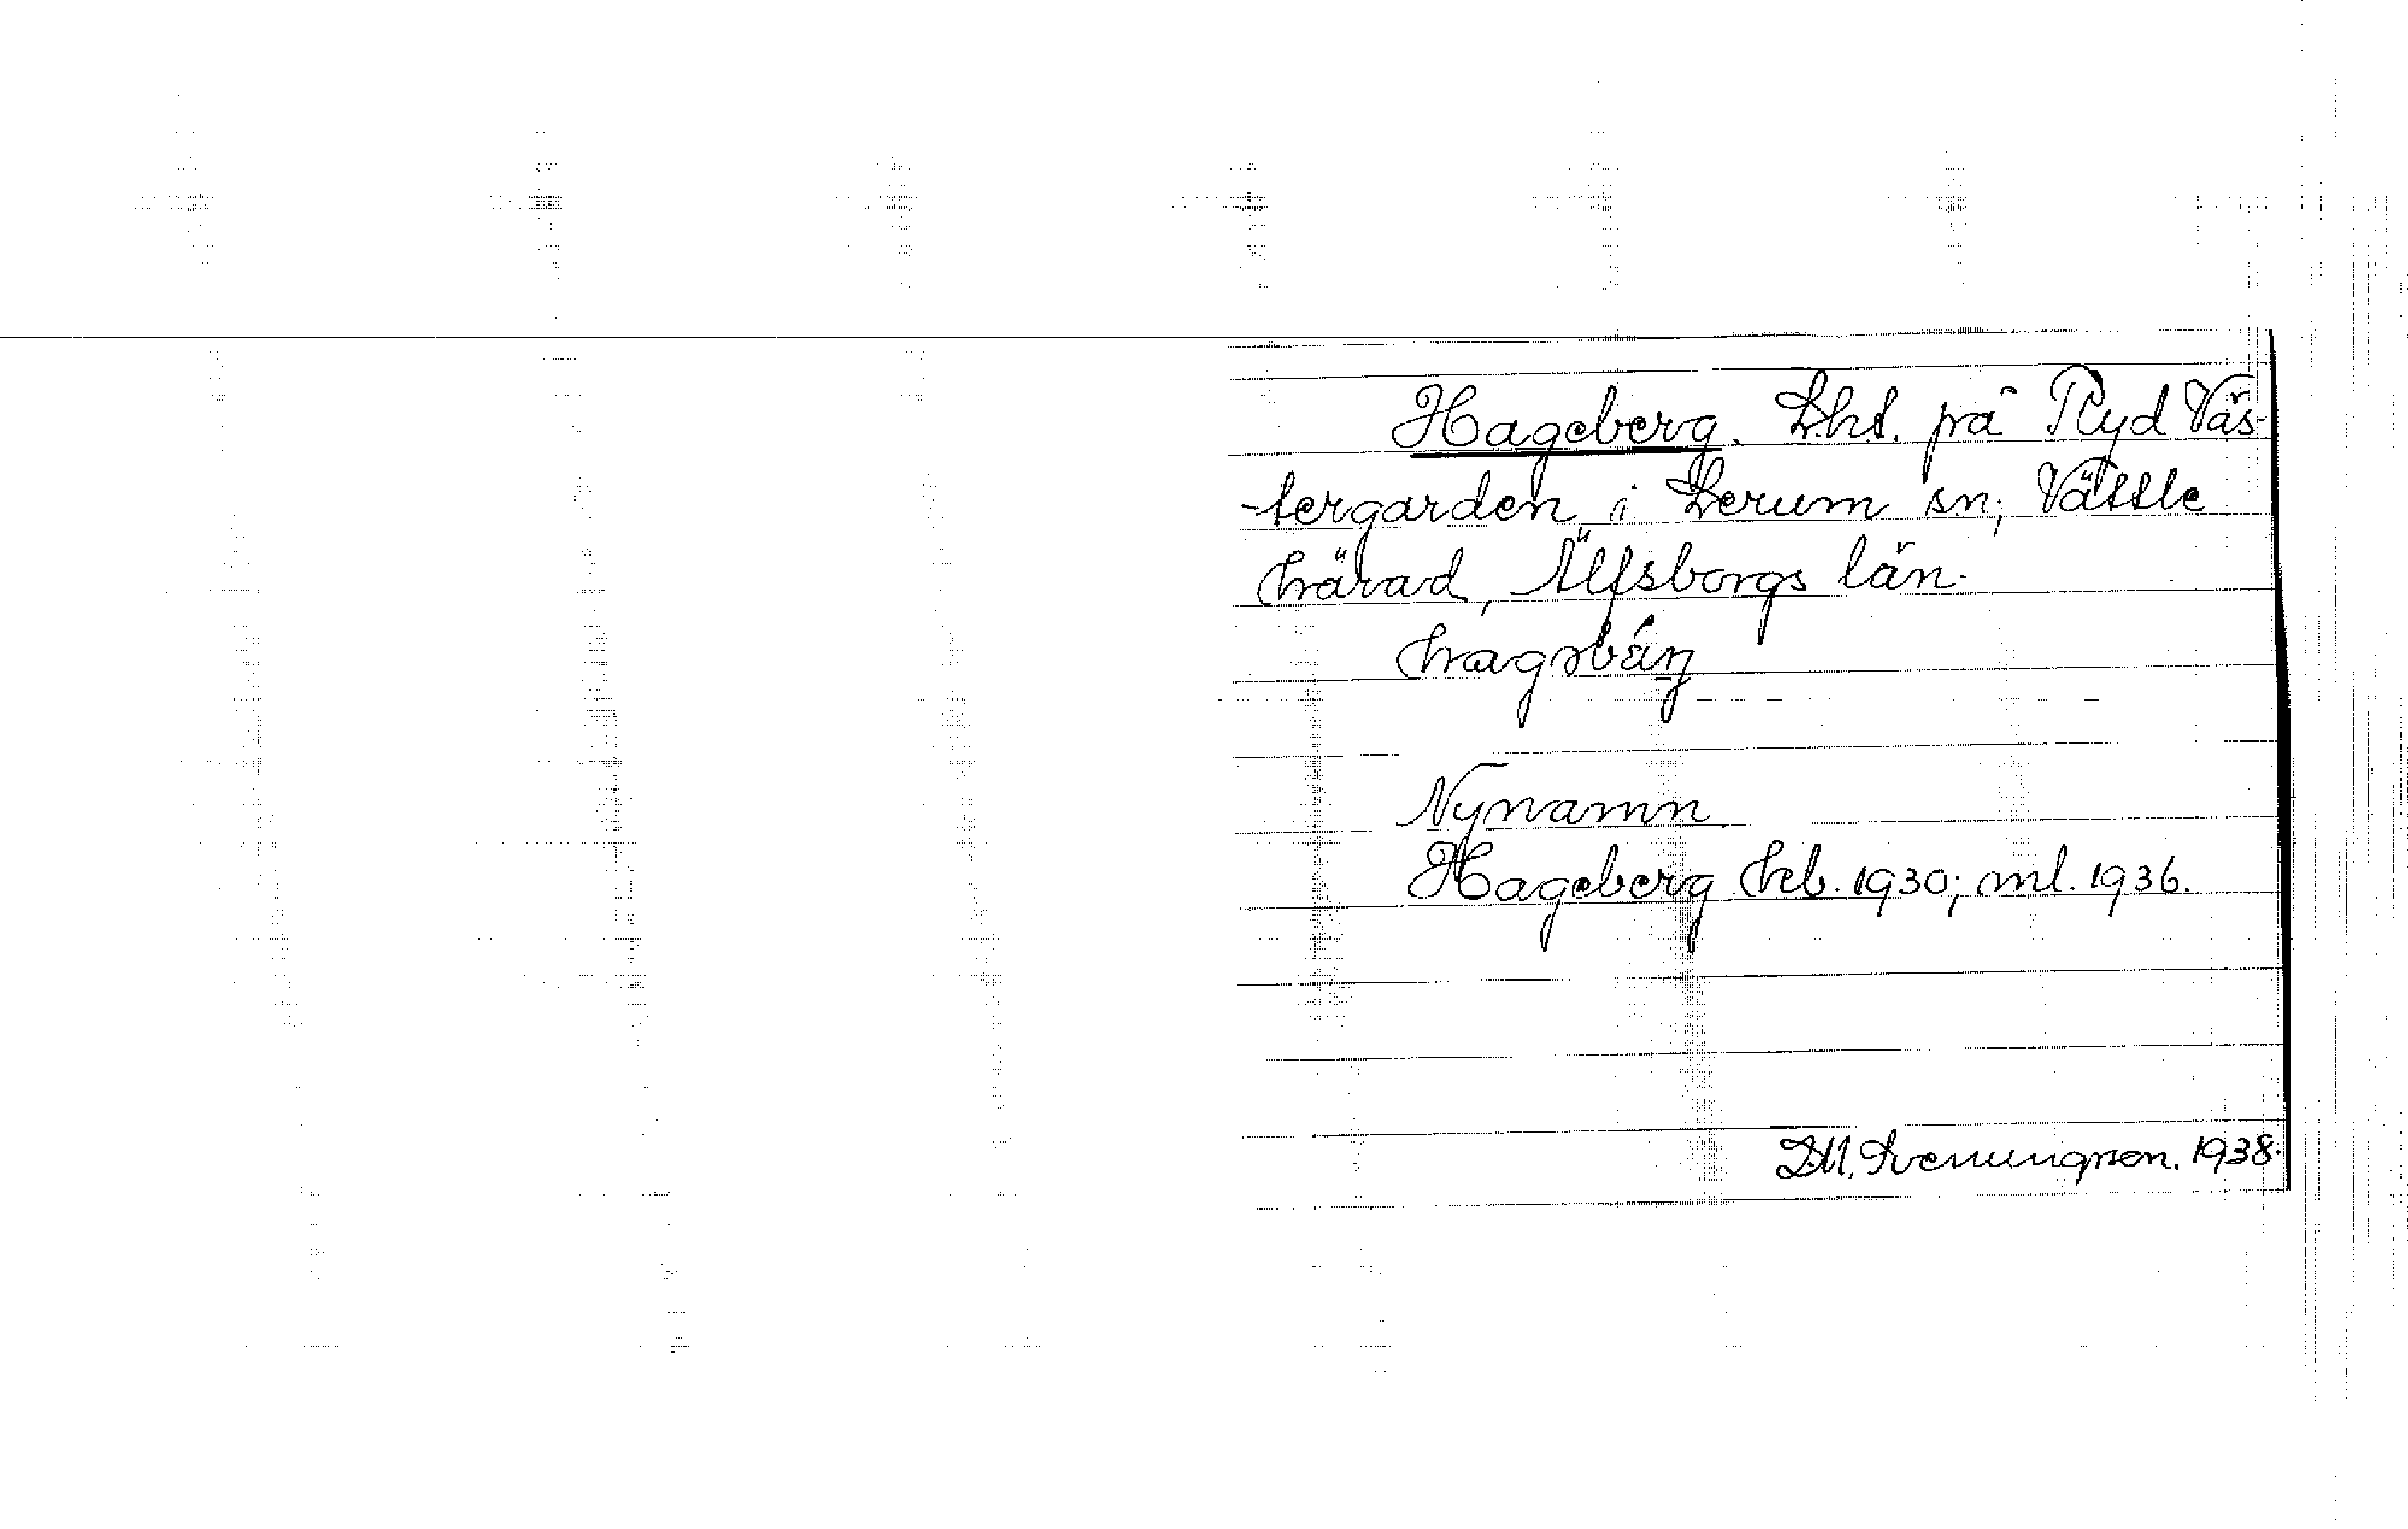 Hageberg. Lht. på Ryd Väs-
-tergarden i Lerum sn; Vättle
härad, Älfsborgs län.
Nynamn.
Hageberg heb. 1930; ml. 1936.
D.M. Svenungsson. 1938.